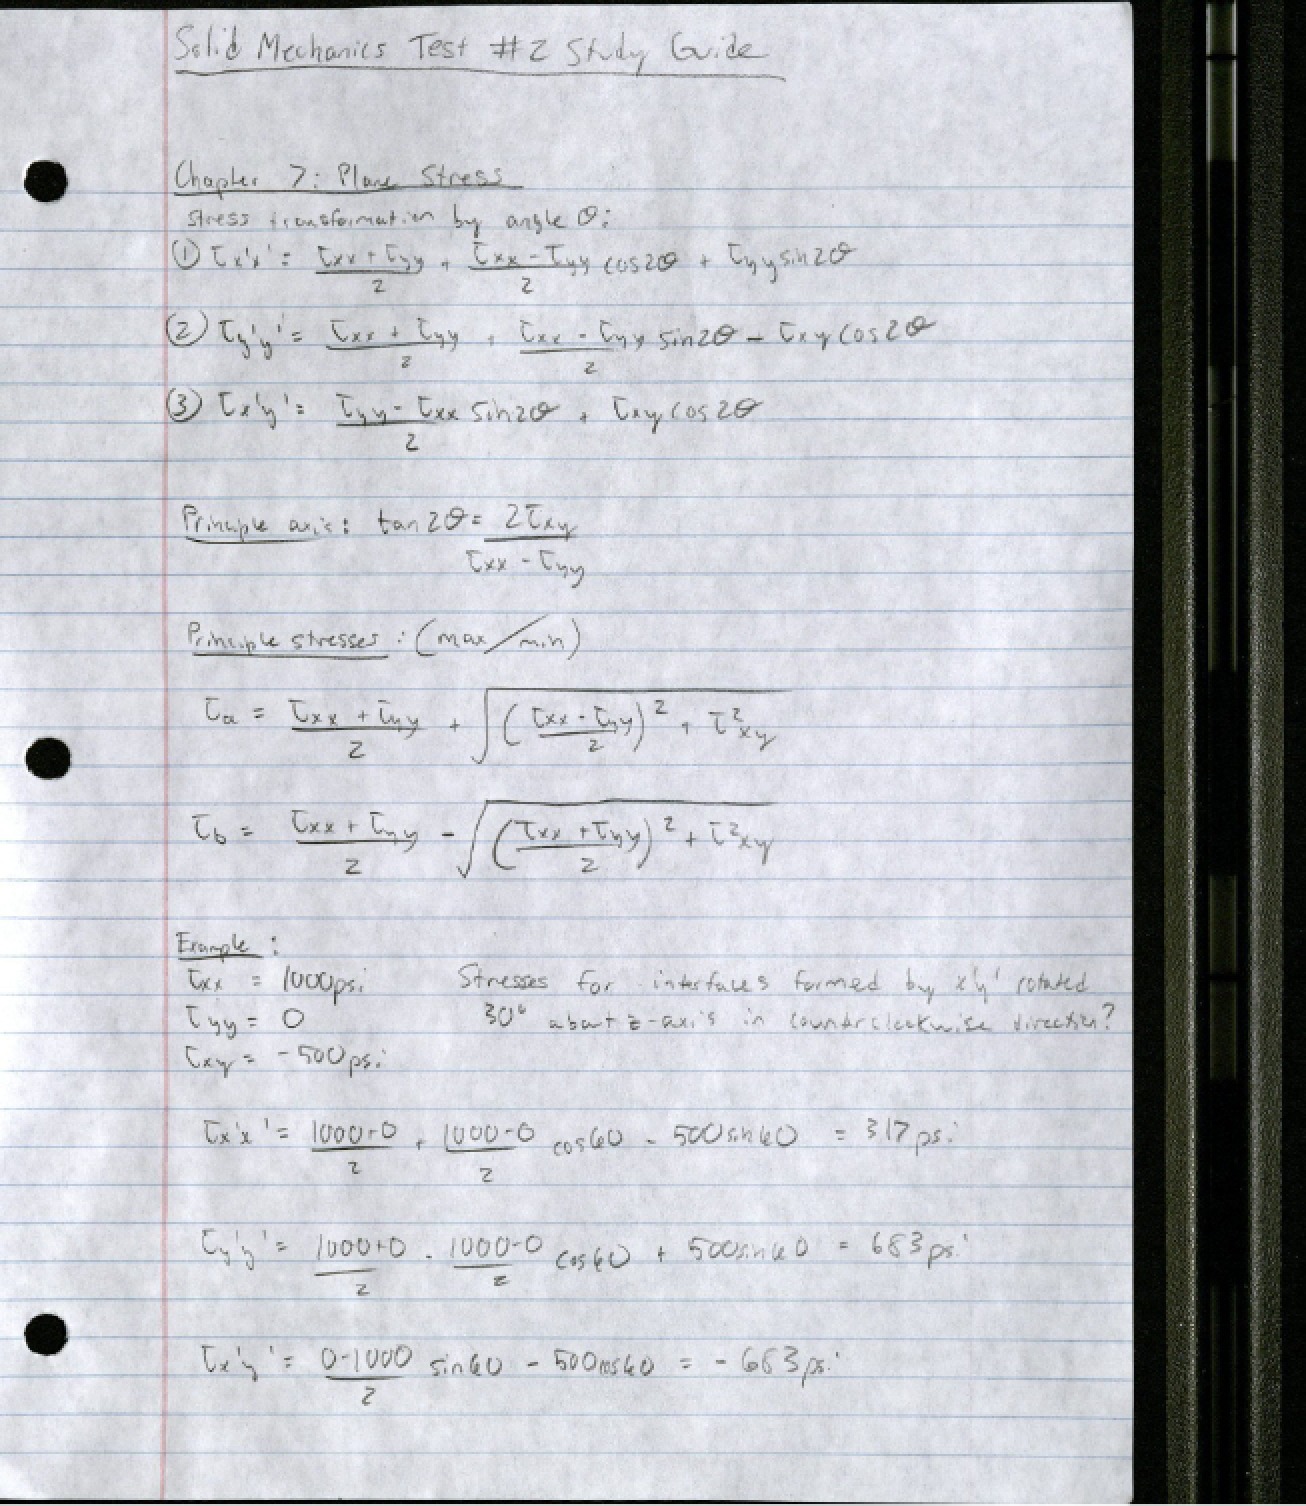 Solid Mechanics Test #2 Study Guide
Chapter 7: Plane Stress
stress transformation by angle θ:
① τx'x' = (τxx + τyy)/2 + (τxx - τyy)/2 cos2θ + τyy sin2θ
② τy'y' = (τxx + τyy)/2 + (τxx - τyy)/2 sin2θ - τxy cos2θ
③ τx'y' = (τyy - τxx)/2 sin2θ + τxy cos2θ
Principle axis: tan2θ = 2τxy/(τxx - τyy)
Principle stresses: (max/min)
τa = (τxx + τyy)/2 + √(((τxx - τyy)/2)² + τ²xy)
τb = (τxx + τyy)/2 - √(((τxx + τyy)/2)² + τ²xy)
Example:
τxx = 1000psi Stresses for interfaces formed by x'y' rotated
τyy = 0 30° about z-axis in counterclockwise direction?
τxy = -500psi
τx'x' = (1000+0)/2 + (1000-0)/2 cos60 - 500sin60 = 317psi
τy'y' = (1000+0)/2 - (1000-0)/2 cos60 + 500sin60 = 683psi
τx'y' = (0-1000)/2 sin60 - 500cos60 = -683psi